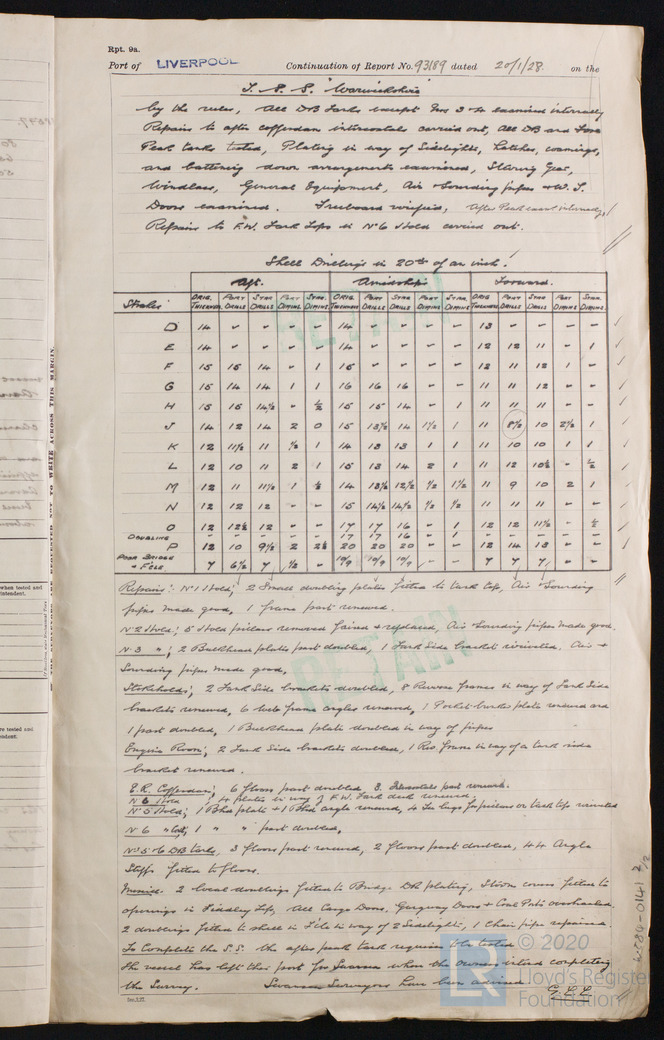 Rpt. 9a.
Port of LIVERPOOL Continuation of Report No. 93189 dated 20/1/28. on the
T. S. S. "Warwickshire"
by the rules, All DB Tanks except Nos 3 & 4 examined internally
Repairs to after cofferdam intercostals carried out, All DB and Fore
Peak tanks tested, Plating in way of Sidelights, Hatches, coamings,
and battening down arrangements examined, Steering Gear,
Windlass, General Equipment, Air & Sounding pipes & W. T.
Doors examined. Freeboard verified, After Peak exam internally
Repairs to F.W. Tank Tops in No 6 Hold carried out.
Shell Drillings in 20ths of an inch.
Aft. Amidships Forward.
Strakes ORIG. THICKNESS PORT DRILLS STAR DRILLS PORT DIMINS STAR. DIMINS. ORIG. THICKNESS PORT DRILLS STAR. DRILLS PORT DIMINS STAR. DIMINS. ORIG. THICKNESS PORT DRILLS STAR. DRILLS PORT DIMINS STAR. DIMINS.
D 14 - - - - 14 - - - - 13 - - - -
E 14 - - - - 14 - - - - 12 12 11 - 1
F 15 15 14 - 1 15 - - - - 12 11 12 1 -
G 15 14 14 1 1 16 16 16 - - 11 11 12 - -
H 15 15 14½ - ½ 15 15 14 - 1 11 11 11 - -
J 14 12 14 2 0 15 13½ 14 1½ 1 11 8½ 10 2½ 1
K 12 11½ 11 ½ 1 14 13 13 1 1 11 10 10 1 1
L 12 10 11 2 1 15 13 14 2 1 11 12 10½ - ½
M 12 11 11½ 1 ½ 14 13½ 12½ ½ 1½ 11 9 10 2 1
N 12 12 12 - - 15 14½ 14½ ½ ½ 11 11 11 - -
O 12 12½ 12 - - 17 17 16 - 1 12 12 11½ - ½
DOUBLING - - - - - 17 17 16 - 1 - - - - -
P 12 10 9½ 2 2½ 20 20 20 - - 12 14 13 - -
POOP BRIDGE & F'CLE 7 6½ 7 ½ - 10/9 10/9 10/9 - - 7 7 7 - -
Repairs:- No 1 Hold; 2 Small doubling plates fitted to tank top, Air & Sounding
pipes made good, 1 frame part renewed.
No 2 Hold; 5 Hold pillars removed faired & replaced, Air & Sounding pipes made good.
No 3 "; 2 Bulkhead plates part doubled, 1 Tank Side bracket reriveted. Air &
Sounding pipes made good,
Stokeholds; 2 Tank Side brackets doubled, 8 Reverse frames in way of Tank Side
brackets renewed, 6 web frame angles renewed, 1 Pocket bunker plate renewed and
1 part doubled, 1 Bulkhead plate doubled in way of pipes
Engine Room; 2 Tank Side brackets doubled, 1 Rev. frame in way of a tank side
bracket renewed.
E.R. Cofferdam; 6 floors part doubled 8. Intercostals part renewed.
No 6 Hold 4 plates in way of F.W. Tank deck renewed.
No 5 Hold; 1 Bhd plate & 1 Bhd angle renewed, 4 lugs on tank top renewed
No 6 " 1 " " part doubled,
No 5 & 6 DB tanks, 3 floors part renewed, 2 floors part doubled, 44 Angle
Stiffs fitted to floors.
2 local doublings fitted to Bridge Dk plating, Storm covers fitted to
openings in Fiddley Top, All Cargo Doors, Gangway Doors & Coal Ports overhauled,
2 doublings fitted to shell in F'cle in way of 2 Sidelights, 1 Chain pipe repaired.
To Complete the S.S. the after peak tank requires to be tested
The vessel has left this port for Swansea where the owners intend completing
the Survey. Swansea Surveyors have been advised
RETAIN
RETAIN
WRITE ACROSS THIS MARGIN
when tested and
W584-0141 2/2
© 2020
LR Lloyd's Register
Foundation